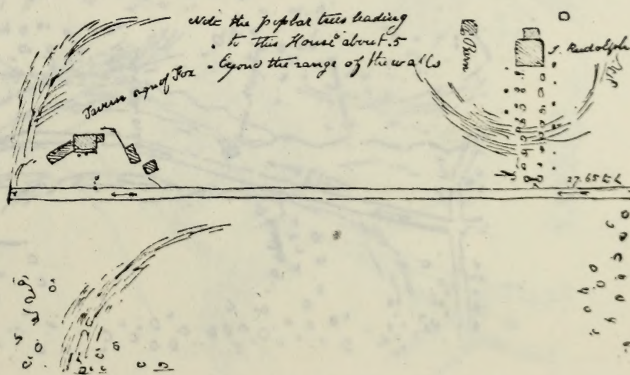 Note the poplar trees leading
to this House about .5
beyond the range of the walls
Tavern sign of Fox
Barn
J. Rudolph
27.65 Ch